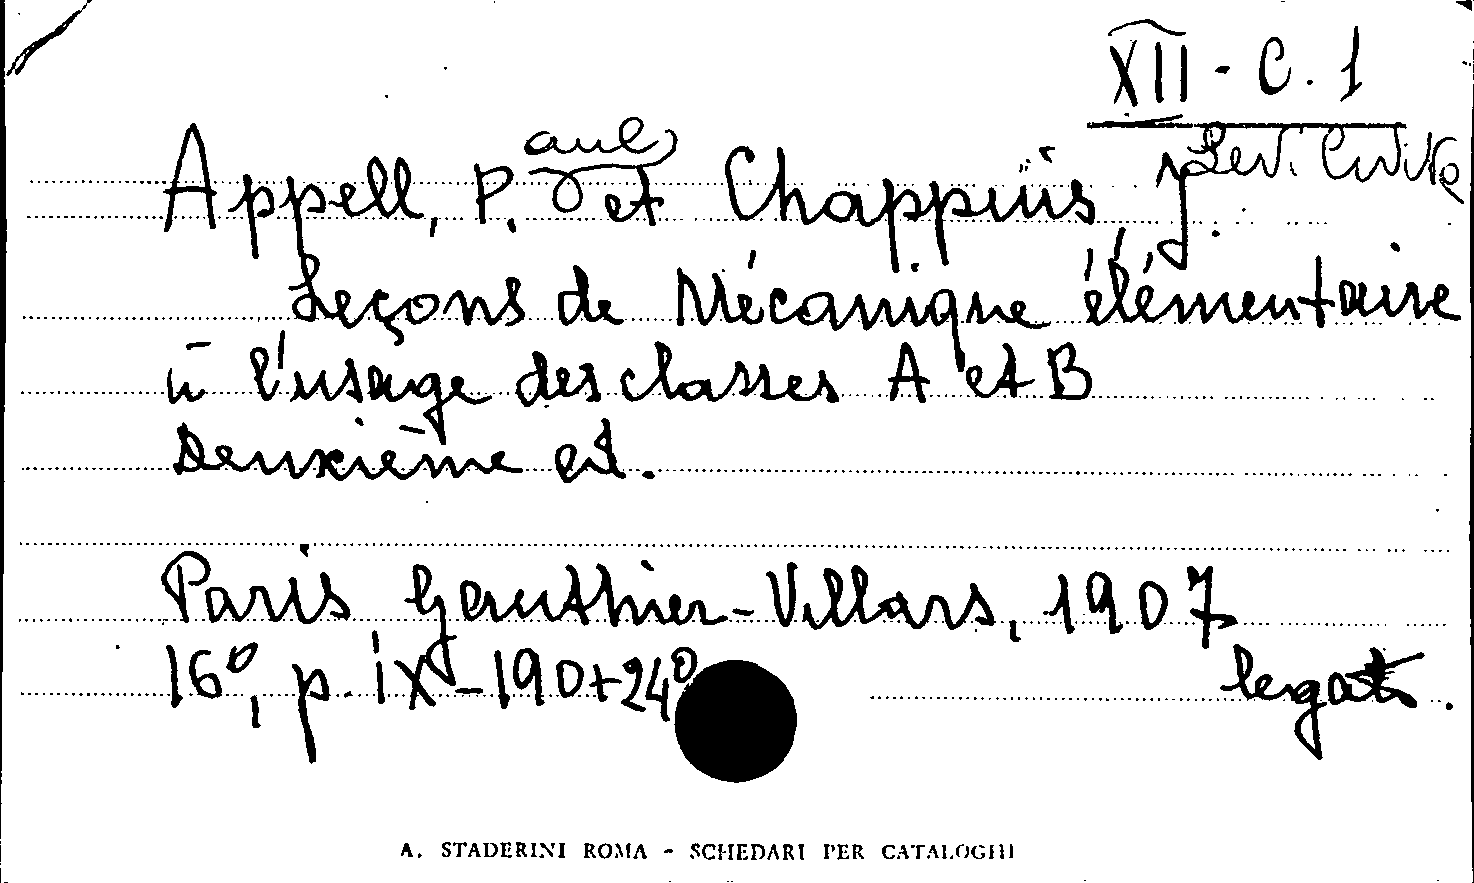 XII - C. 1
Lev. Civita
Appell, P.aul et Chappuis J.
Leçons de Mécanique élémentaire
à l'usage des classes A et B
Deuxième ed.
Paris Gauthier-Villars, 1907
16°, p. IX-190+24
legat.
A. STADERINI ROMA - SCHEDARI PER CATALOGHI